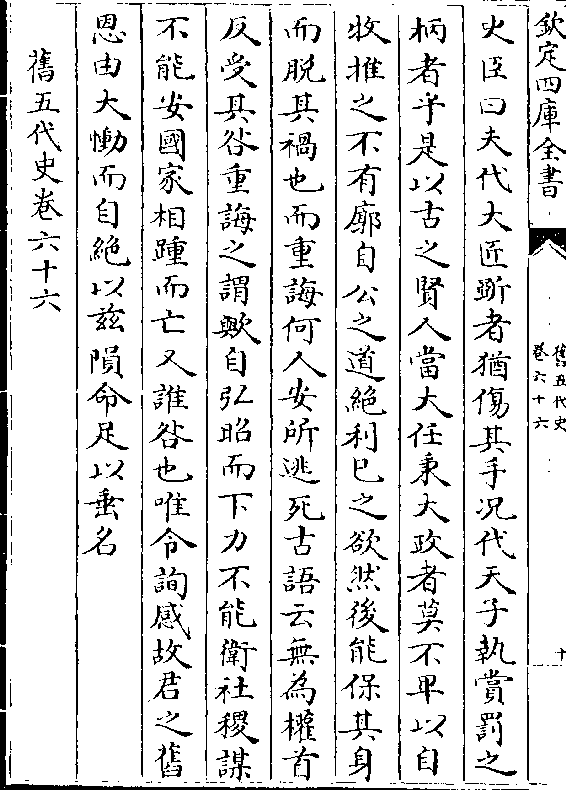 欽定四庫全書
舊五代史
卷六十六
十
史臣曰夫代大匠斲者猶傷其手况代天子執賞罰之
柄者乎是以古之賢人當大任秉大政者莫不卑以自
牧推之不有廓自公之道絶利已之欲然後能保其身
而脫其禍也而重誨何人安所逃死古語云無為權首
反受其咎重誨之謂歟自弘昭而下力不能衛社稷謀
不能安國家相踵而亡又誰咎也唯令詢感故君之舊
恩由大慟而自絶以兹隕命足以垂名
舊五代史卷六十六